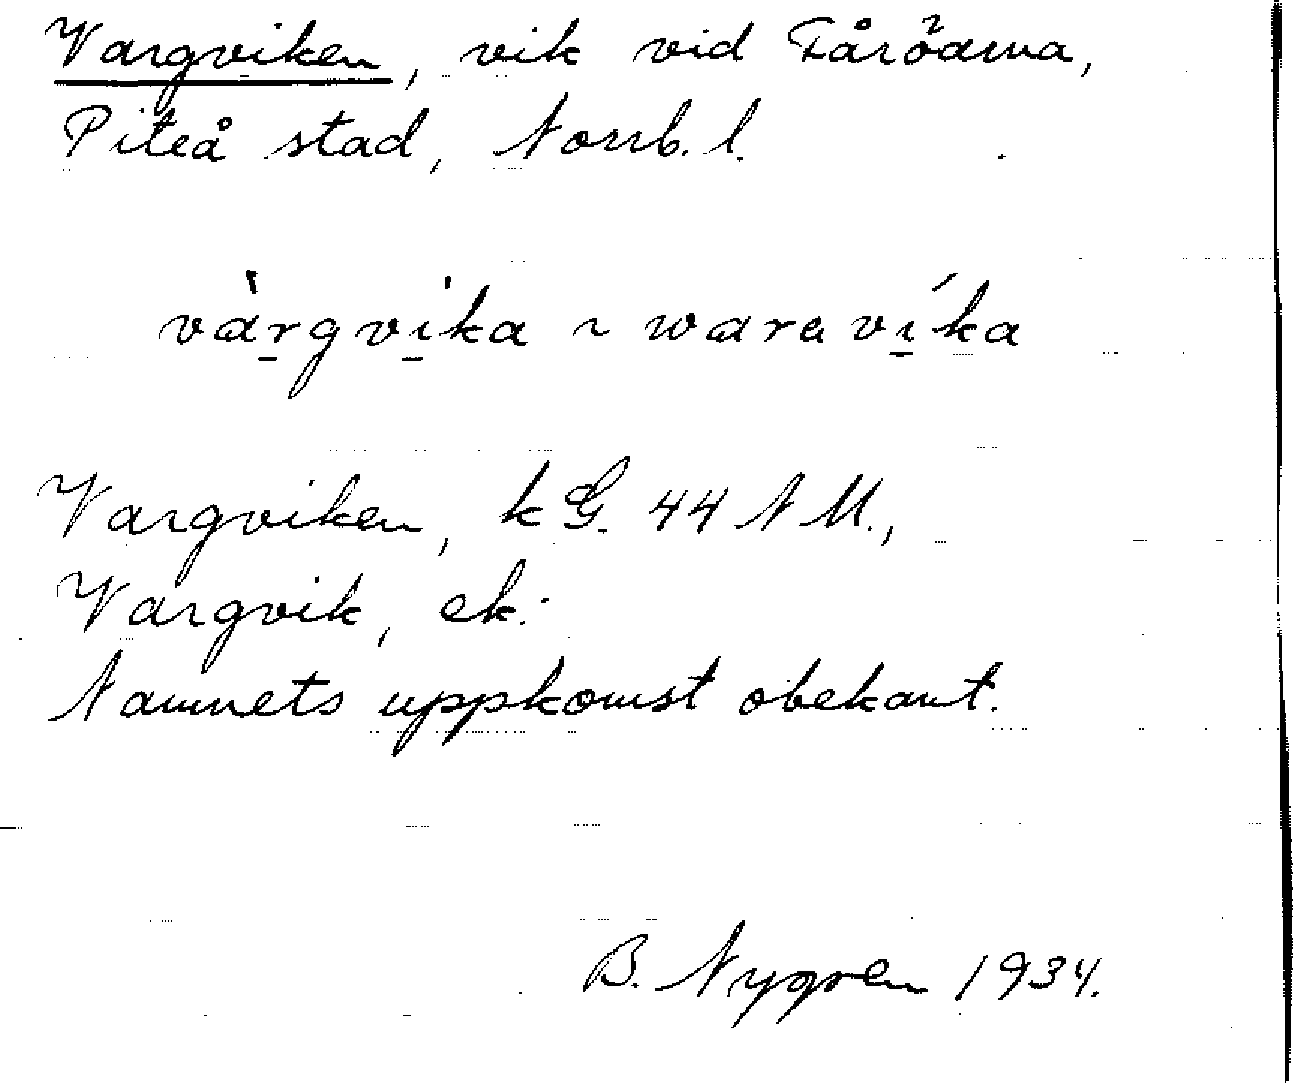 Vargviken, vik vid Fåröarna,
Piteå stad, Norrb. l.
vàrgvi̍ka ~ waravíka
Vargviken, k G. 44 N M.,
Vargvik, ek.
Namnets uppkomst obekant.
B. Nygren 1934.